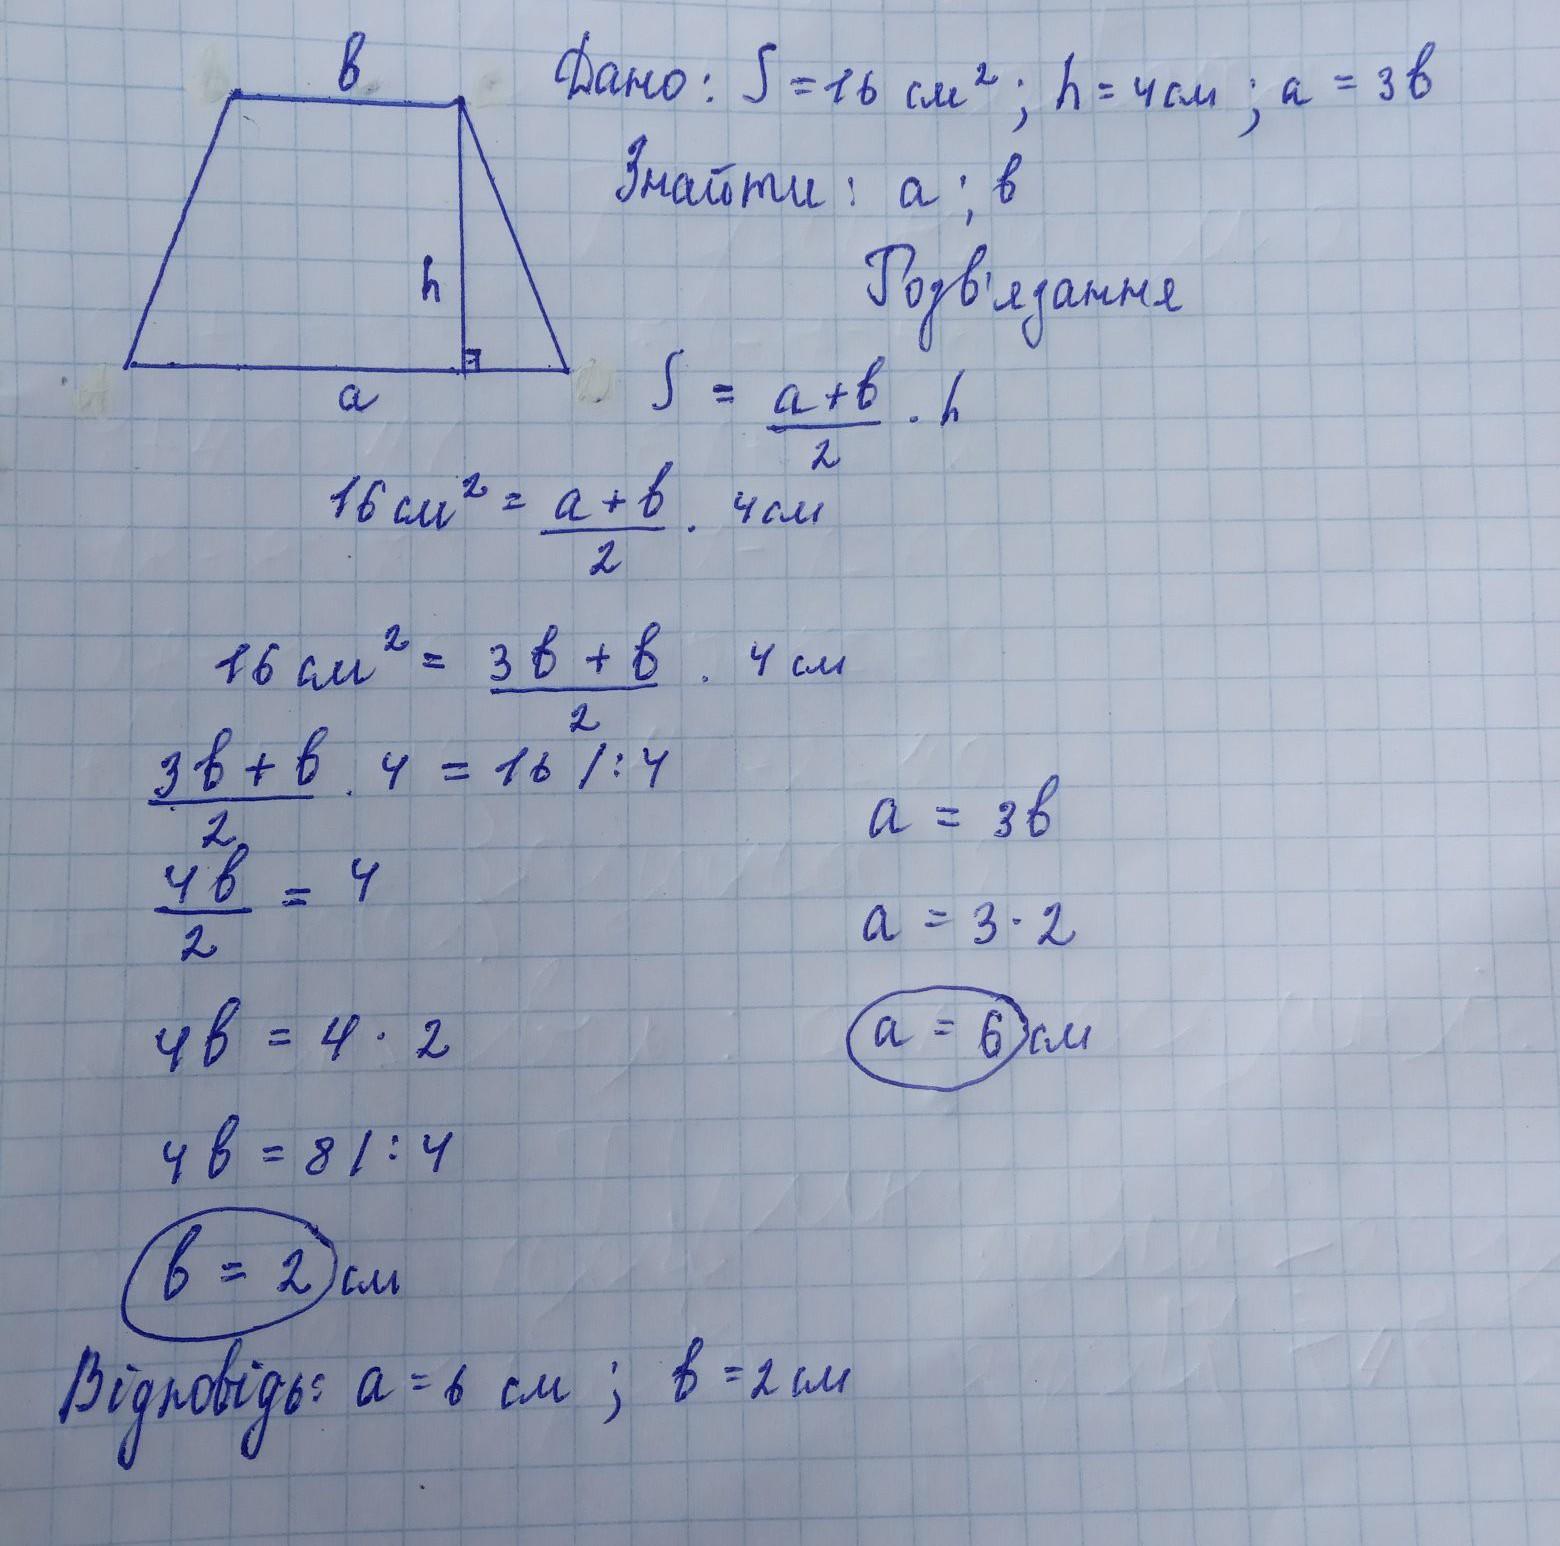 в
Дано: S = 16 см²; h = 4 см; a = 3в
Знайти: a; в
Розв'язання
h
a
S = (a+в)/2 · h
16 см² = (a+в)/2 · 4 см
16 см² = (3в+в)/2 · 4 см
(3в+в)/2 · 4 = 16 /:4
4в/2 = 4
4в = 4 · 2
4в = 8 /:4
в = 2 см
a = 3в
a = 3 · 2
a = 6 см
Відповідь: a = 6 см; в = 2 см